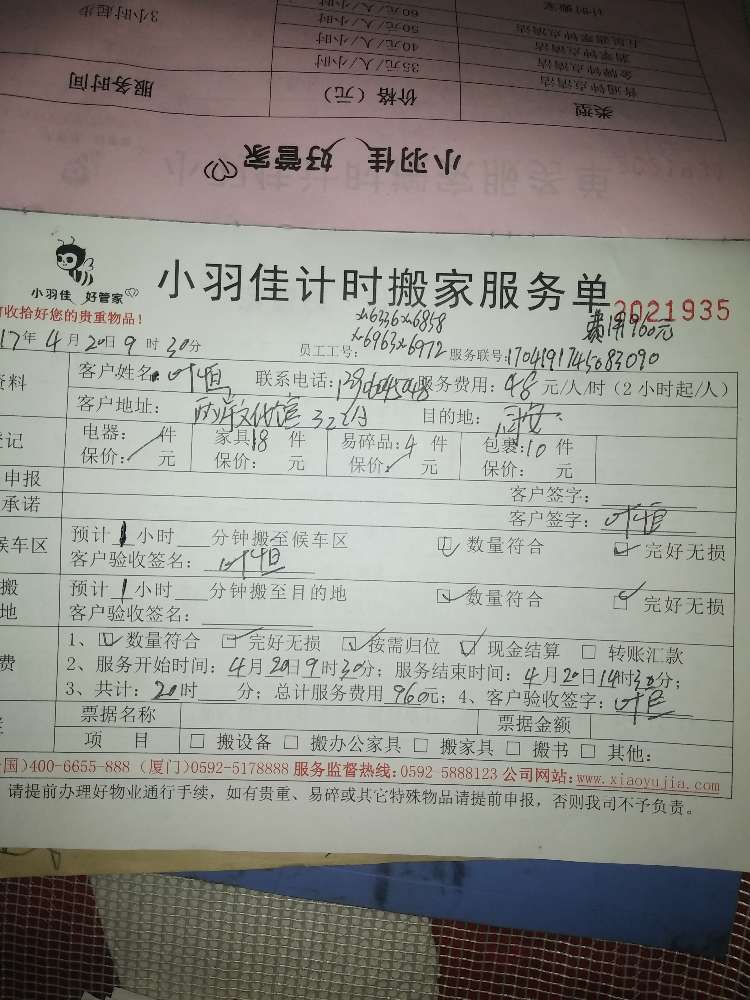 计时搬家
60元/人/小时
3小时起步
50元/人/小时
40元/人/小时
35元/人/小时
类型
价格（元）
服务时间
小羽佳 好管家
小羽佳 好管家
小羽佳计时搬家服务单
2021935
收拾好您的贵重物品！
960元
x6336 x6858
17年4月20日9时30分
员工工号：x6963 x6972
服务联号：
资料
客户姓名：叶恒
联系电话：
服务费用：48元/人/时（2小时起/人）
客户地址：
目的地：同安
登记
电器： 件
家具18件
易碎品：4件
包裹：10件
保价： 元
保价： 元
保价： 元
保价： 元
申报
客户签字：
承诺
客户签字：叶恒
候车区
预计1小时 分钟搬至候车区
☑ 数量符合
☑ 完好无损
客户验收签名：叶恒
搬
地
预计1小时 分钟搬至目的地
☑ 数量符合
☑ 完好无损
客户验收签名：
费
1、☑ 数量符合 ☑ 完好无损 ☑ 按需归位 ☑ 现金结算 □ 转账汇款
2、服务开始时间：4月20日9时30分；服务结束时间：4月20日14时30分；
3、共计：20时 分；总计服务费用960元；4、客户验收签字：叶恒
票据名称
票据金额
项 目
□ 搬设备 □ 搬办公家具 □ 搬家具 □ 搬书 □ 其他：
国）400-6655-888（厦门）0592-5178888 服务监督热线：0592-5888123 公司网站：www.xiaoyujia.com
请提前办理好物业通行手续，如有贵重、易碎或其它特殊物品请提前申报，否则我司不予负责。